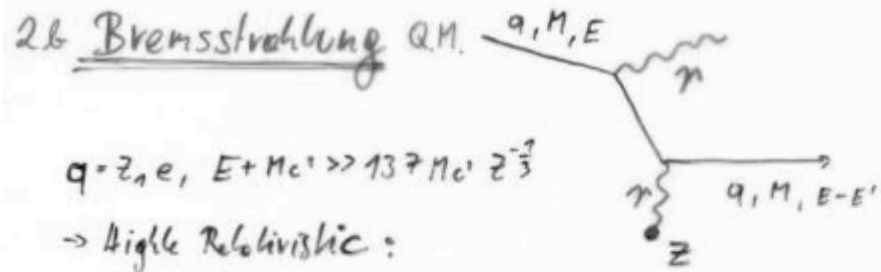 2b Bremsstrahlung Q.M.
q, M, E
γ
q = Z₁ e, E + Mc² >> 137 Mc² Z^{-1/3}
γ
q, M, E-E'
→ Highle Relativistic :
Z